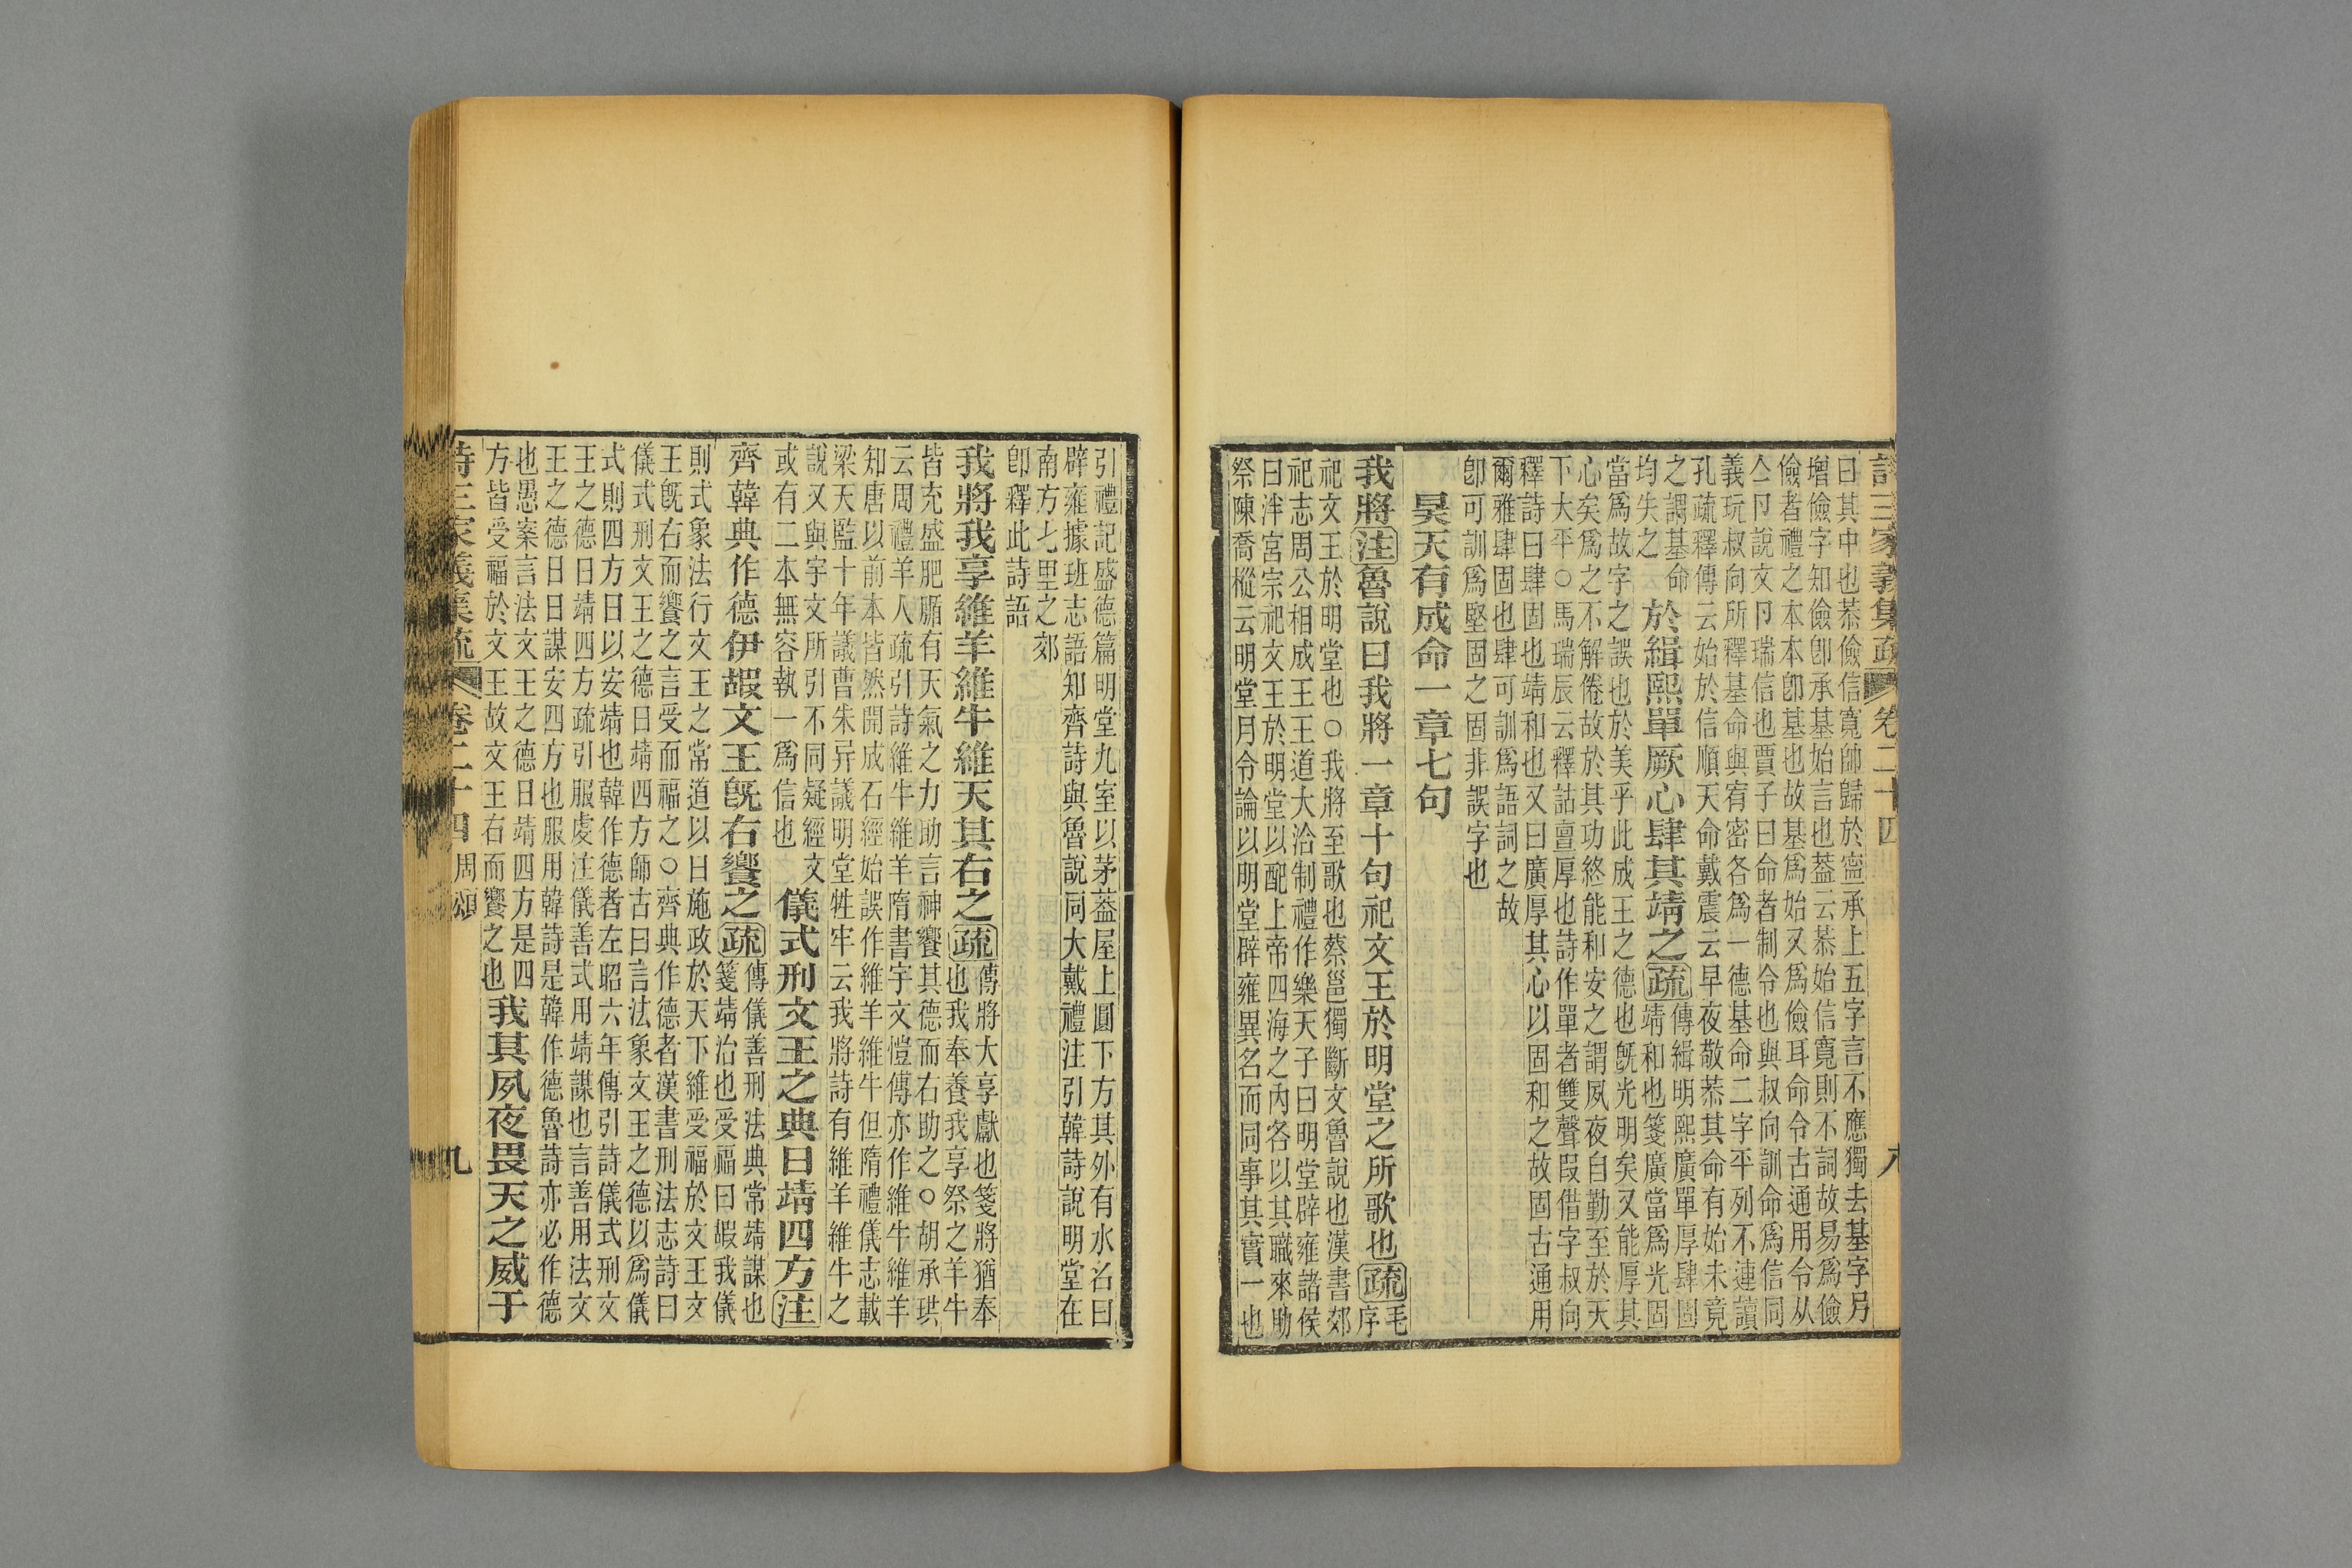 詩三家義集疏 卷二十四 八
曰其中也恭儉信寬帥歸於寍承上五字言不應獨去基字另
增儉字知儉卽承基始言也葢云恭始信寬則不詞故易爲儉
儉者禮之本本卽基也故基爲始又爲儉耳命令古通用令从
亼卩說文卩瑞信也賈子曰命者制令也與叔向訓命爲信同
義玩叔向所釋基命與宥密各爲一德基命二字平列不連讀
孔疏釋傳云始於信順天命戴震云早夜敬恭其命有始未竟
之謂基命
均失之
於緝熙單厥心肆其靖之疏
傳緝明熙廣單厚肆固
靖和也箋廣當爲光固
當爲故字之誤也於美乎此成王之德也旣光明矣又能厚其
心矣爲之不解倦故於其功終能和安之謂夙夜自勤至於天
下大平○馬瑞辰云釋詁亶厚也詩作單者雙聲叚借字叔向
釋詩曰肆固也靖和也又曰廣厚其心以固和之故固古通用
爾雅肆固也肆可訓爲語詞之故
卽可訓爲堅固之固非誤字也
昊天有成命一章七句
我將注魯說曰我將一章十句祀文王於明堂之所歌也疏
毛
序
祀文王於明堂也○我將至歌也蔡邕獨斷文魯說也漢書郊
祀志周公相成王王道大洽制禮作樂天子曰明堂辟雍諸侯
曰泮宮宗祀文王於明堂以配上帝四海之內各以其職來助
祭陳喬樅云明堂月令論以明堂辟雍異名而同事其實一也
引禮記盛德篇明堂九室以茅葢屋上圓下方其外有水名曰
辟雍據班志語知齊詩與魯說同大戴禮注引韓詩說明堂在
南方七里之郊
卽釋此詩語
我將我享維羊維牛維天其右之疏
傳將大享獻也箋將猶奉
也我奉養我享祭之羊牛
皆充盛肥腯有天氣之力助言神饗其德而右助之○胡承珙
云周禮羊人疏引詩維牛維羊隋書宇文愷傳亦作維牛維羊
知唐以前本皆然開成石經始誤作維羊維牛但隋禮儀志載
梁天監十年議曹朱异議明堂牲牢云我將詩有維羊維牛之
說又與宇文所引不同疑經文
或有二本無容執一爲信也
儀式刑文王之典日靖四方注
齊韓典作德伊嘏文王旣右饗之疏
傳儀善刑法典常靖謀也
箋靖治也受福曰嘏我儀
則式象法行文王之常道以日施政於天下維受福於文王文
王旣右而饗之言受而福之○齊典作德者漢書刑法志詩曰
儀式刑文王之德日靖四方師古曰言法象文王之德以爲儀
式則四方日以安靖也韓作德者左昭六年傳引詩儀式刑文
王之德日靖四方疏引服虔注儀善式用靖謀也言善用法文
王之德日日謀安四方也服用韓詩是韓作德魯詩亦必作德
也愚案言法文王之德日靖四方是四
方皆受福於文王故文王右而饗之也
我其夙夜畏天之威于
詩三家義集疏 卷二十四 周頌 九